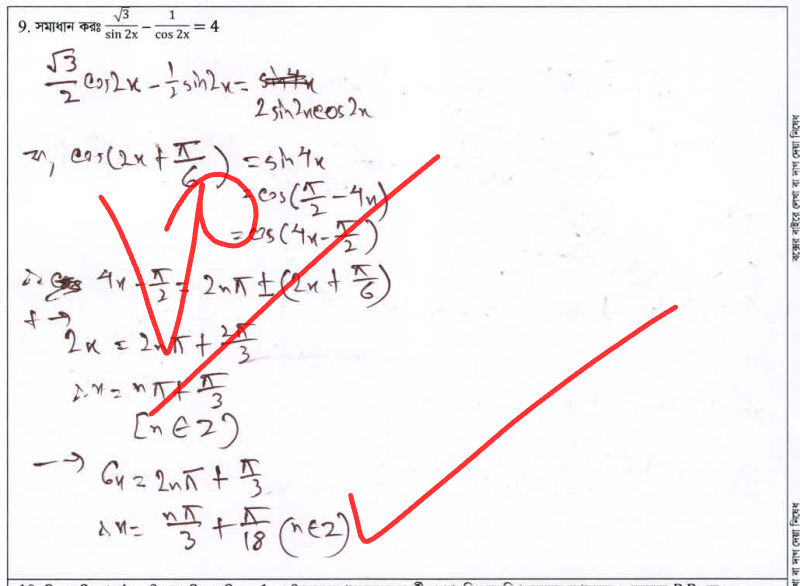 9. সমাধান করঃ √3/sin 2x − 1/cos 2x = 4
√3/2 cos2x - 1/2 sin2x = sin4x
2 sin2x cos2x
বা, cos(2x + π/6) = sin4x
= cos(π/2 - 4x)
= cos(4x - π/2)
∴ 4x - π/2 = 2nπ ± (2x + π/6)
+ →
2x = 2nπ + 2π/3
∴ x = nπ + π/3
[n ∈ Z)
- → 6x = 2nπ + π/3
∴ x = nπ/3 + π/18 (n∈Z)
বক্সের বাইরে লেখা বা দাগ দেয়া নিষেধ
বা দাগ দেয়া নিষেধ